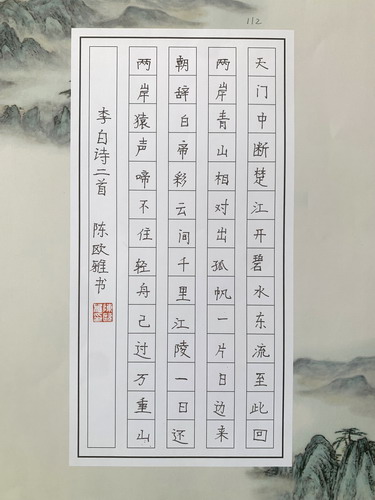 112
天门中断楚江开碧水东流至此回
两岸青山相对出孤帆一片日边来
朝辞白帝彩云间千里江陵一日还
两岸猿声啼不住轻舟已过万重山
李白诗二首 陈欧雅书